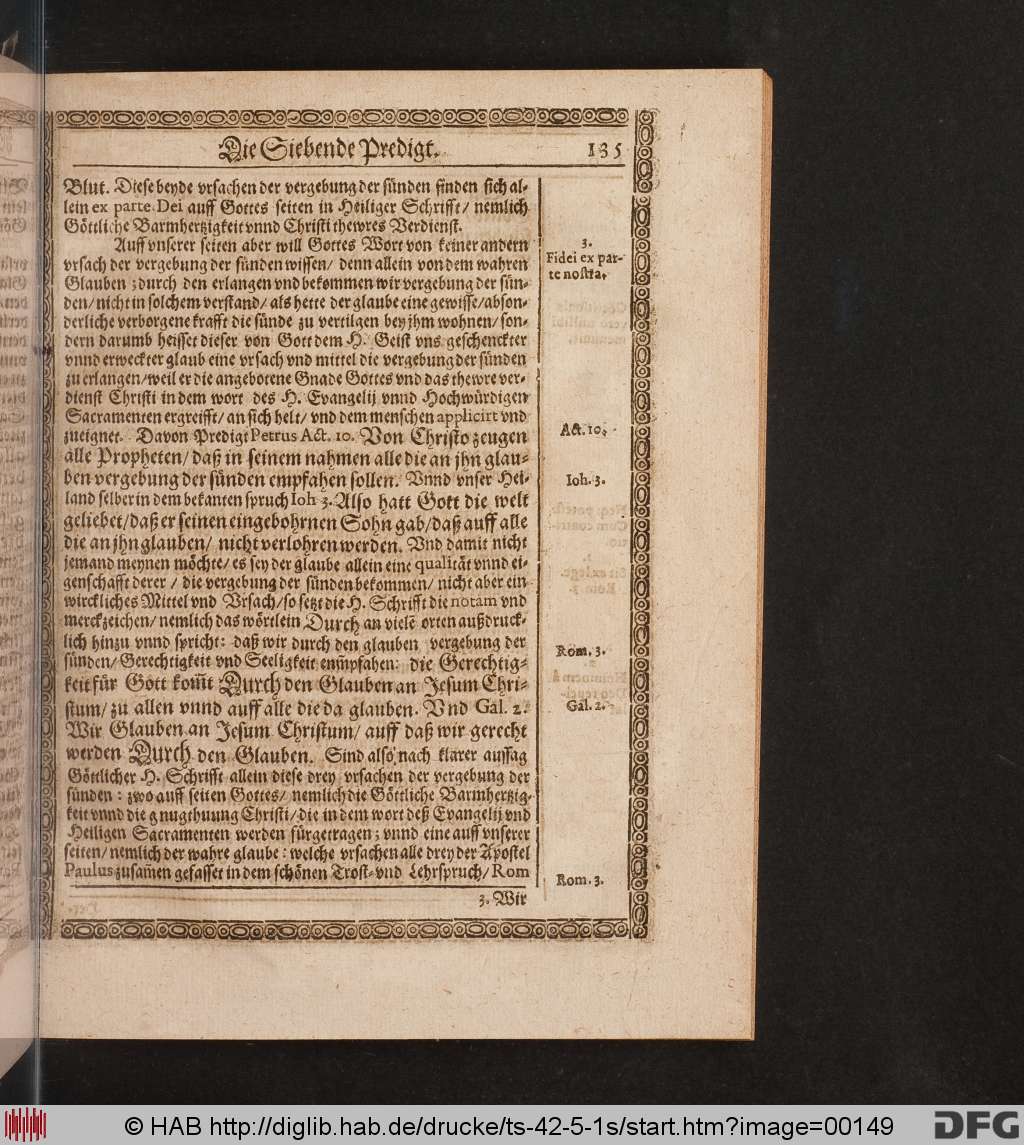 Die Siebende Predigt.
135
Blut. Diese beyde vrsachen der vergebung der sünden finden sich al-
lein ex parte Dei auff Gottes seiten in Heiliger Schrifft/ nemlich
Göttliche Barmhertzigkeit vnnd Christi thewres Verdienst.
Auff vnserer seiten aber will Gottes Wort von keiner andern
vrsach der vergebung der sünden wissen/ denn allein von dem wahren
Glauben ; durch den erlangen vnd bekommen wir vergebung der sün-
den/ nicht in solchem verstand/ als hette der glaube eine gewisse/ abson-
derliche verborgene krafft die sünde zu vertilgen bey jhm wohnen/ son-
dern darumb heisset dieser von Gott dem H. Geist vns geschenckter
vnnd erweckter glaub eine vrsach vnd mittel die vergebung der sünden
zu erlangen/ weil er die angebotene Gnade Gottes vnd das thewre ver-
dienst Christi in dem wort des H. Evangelij vnnd Hochwürdigen
Sacramenten ergreifft/ an sich helt/ vnd dem menschen applicirt vnd
zueignet. Davon Predigt Petrus Act. 10. Von Christo zeugen
alle Propheten/ daß in seinem nahmen alle die an jhn glau-
ben vergebung der sünden empfahen sollen. Vnnd vnser Hei-
land selber in dem bekanten spruch Ioh 3. Also hatt Gott die welt
geliebet/ daß er seinen eingebohrnen Sohn gab/ daß auff alle
die an jhn glauben/ nicht verlohren werden. Vnd damit nicht
jemand meynen möchte/ es sey der glaube allein eine qualität vnnd ei-
genschafft derer / die vergebung der sünden bekommen/ nicht aber ein
wirckliches Mittel vnd Vrsach/ so setzt die H. Schrifft die notam vnd
merckzeichen/ nemlich das wörtlein Durch an vielē orten außdruck-
lich hinzu vnnd spricht: daß wir durch den glauben vergebung der
sünden/ Gerechtigkeit vnd Seeligkeit empfahen: die Gerechtig-
keit für Gott kom̃t Durch den Glauben an Jesum Chri-
stum/ zu allen vnnd auff alle die da glauben. Vnd Gal. 2.
Wir Glauben an Jesum Christum/ auff daß wir gerecht
werden Durch den Glauben. Sind also nach klarer aussag
Göttlicher H. Schrifft allein diese drey vrsachen der vergebung der
sünden : zwo auff seiten Gottes/ nemlich die Göttliche Barmhertzig-
keit vnnd die gnugthuung Christi/ die in dem wort deß Evangelij vnd
Heiligen Sacramenten werden fürgetragen ; vnnd eine auff vnserer
seiten/ nemlich der wahre glaube : welche vrsachen alle drey der Apostel
Paulus zusam̃en gefasset in dem schönen Trost- vnd Lehrspruch/ Rom
3. Wir
3.
Fidei ex par-
te nostra.
Act. 10.
Ioh. 3.
Rom. 3.
Gal. 2.
Rom. 3.
© HAB http://diglib.hab.de/drucke/ts-42-5-1s/start.htm?image=00149
DFG